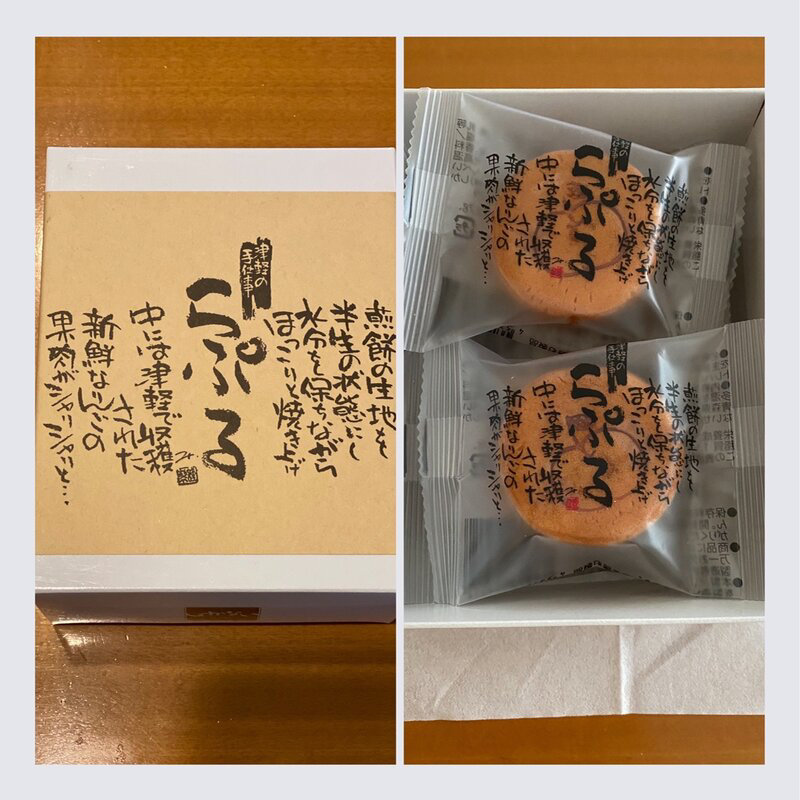 津軽の
手仕事
らぷる
煎餅の生地を
半生の状態にし
水分を保ちながら
ほっこりと焼き上げ
中には津軽で収穫
された
新鮮なりんごの
果肉がシャリシャリと…
津軽の
手仕事
らぷる
煎餅の生地を
半生の状態にし
水分を保ちながら
ほっこりと焼き上げ
中には津軽で収穫
された
新鮮なりんごの
果肉がシャリシャリと…
津軽の
手仕事
らぷる
煎餅の生地を
半生の状態にし
水分を保ちながら
ほっこりと焼き上げ
中には津軽で収穫
された
新鮮なりんごの
果肉がシャリシャリと…